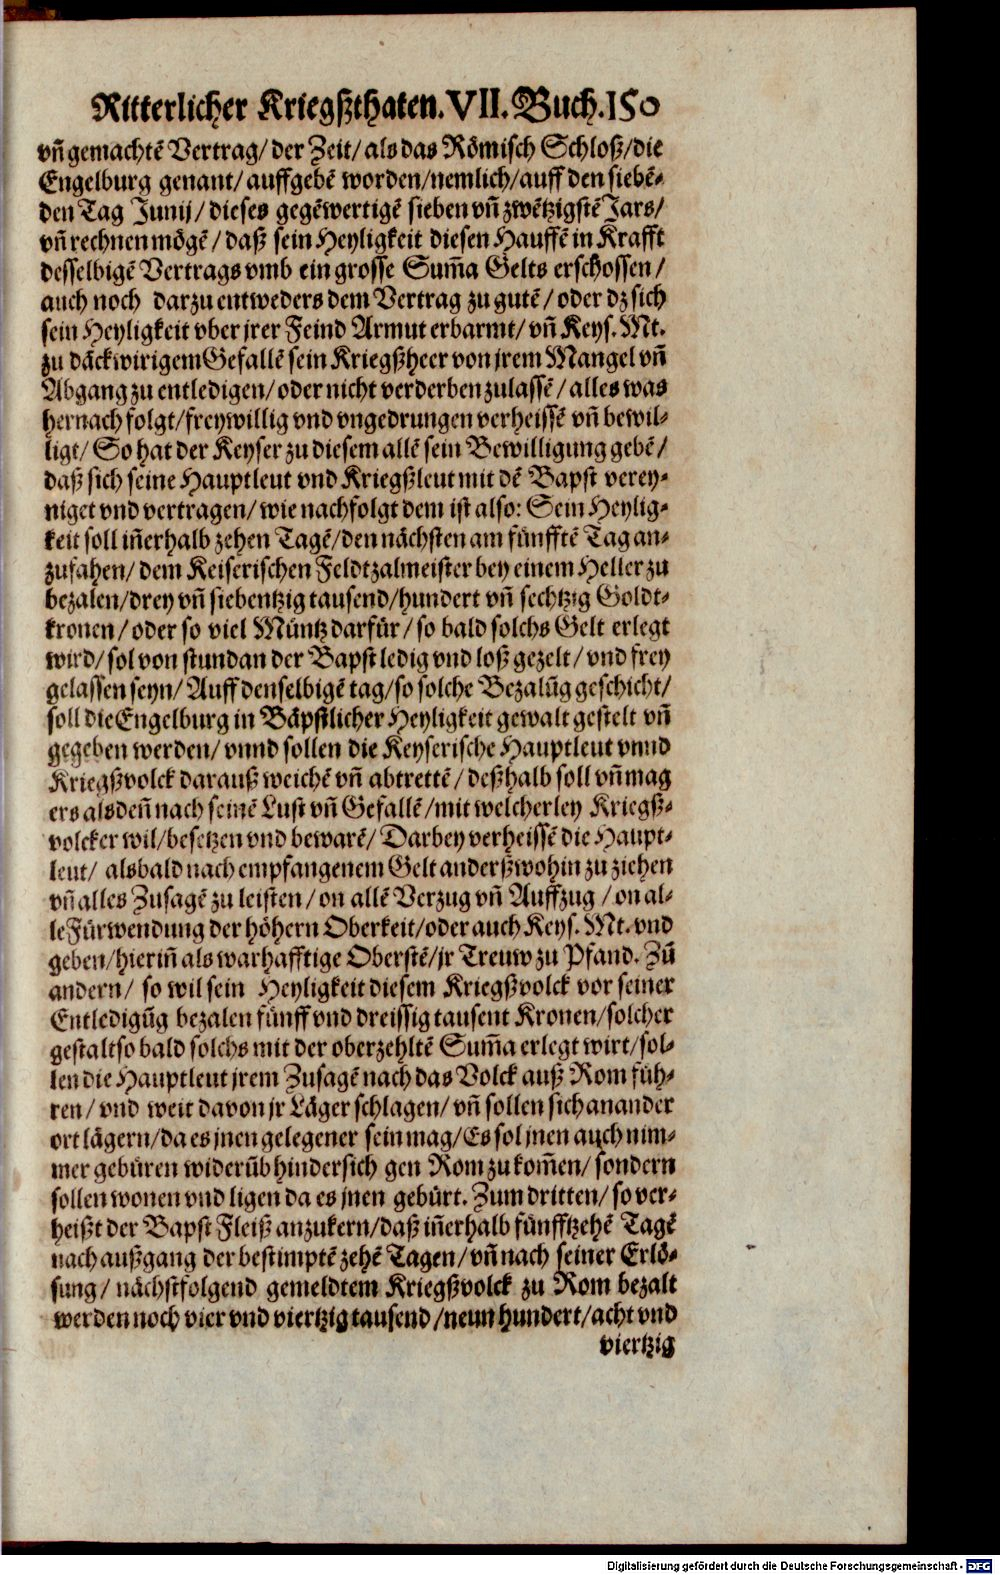 Ritterlicher Kriegßthaten. VII. Buch. 150
vñ gemachtẽ Vertrag/ der Zeit/ als das Römisch Schloß/ die
Engelburg genant/ auffgebẽ worden/ nemlich/ auff den siebẽ-
den Tag Junij/ dieses gegẽwertigẽ sieben vñ zwẽtzigstẽ Jars/
vñ rechnen mögẽ/ daß sein Heyligkeit diesen Hauffẽ in Krafft
desselbigẽ Vertrags vmb ein grosse Sum̃a Gelts erschossen/
auch noch darzu entweders dem Vertrag zu gutẽ/ oder dz sich
sein Heyligkeit vber jrer Feind Armut erbarmt/ vñ Keys. Mt.
zu dãckwirigem Gefallẽ sein Kriegßheer von jrem Mangel vñ
Abgang zu entledigen/ oder nicht verderben zulassẽ/ alles was
hernach folgt/ freywillig vnd vngedrungen verheissẽ vñ bewil-
ligt/ So hat der Keyser zu diesem allẽ sein Bewilligung gebẽ/
daß sich seine Hauptleut vnd Kriegßleut mit dẽ Bapst verey-
niget vnd vertragen/ wie nachfolgt dem ist also: Sein Heylig-
keit soll iñerhalb zehen Tagẽ/ den nächsten am fünfftẽ Tag an-
zufahen/ dem Keiserischen Feldtzalmeister bey einem Heller zu
bezalen/ drey vñ siebentzig tausend/ hundert vñ sechtzig Goldt-
kronen/ oder so viel Müntz darfür/ so bald solchs Gelt erlegt
wird/ sol von stundan der Bapst ledig vnd loß gezelt/ vnd frey
gelassen seyn/ Auff denselbigẽ tag/ so solche Bezalũg geschicht/
soll die Engelburg in Bäpstlicher Heyligkeit gewalt gestelt vñ
gegeben werden/ vnnd sollen die Keyserische Hauptleut vnnd
Kriegßvolck darauß weichẽ vñ abtrettẽ/ deßhalb soll vñ mag
ers alsdeñ nach seinẽ Lust vñ Gefallẽ/ mit welcherley Kriegß-
volck er wil/ besetzen vnd bewarẽ/ Darbey verheissẽ die Haupt-
leut/ alsbald nach empfangenem Gelt anderßwohin zu ziehen
vñ alles Zusagẽ zu leisten/ on allẽ Verzug vñ Auffzug/ on al-
le Fürwendung der höhern Oberkeit/ oder auch Keys. Mt. vnd
geben/ hieriñ als warhafftige Oberstẽ/ jr Treuw zu Pfand. Zũ
andern/ so wil sein Heyligkeit diesem Kriegßvolck vor seiner
Entledigũg bezalen fünff vnd dreissig tausent Kronen/ solcher
gestalt so bald solchs mit der oberzehltẽ Sum̃a erlegt wirt/ sol-
len die Hauptleut jrem Zusagẽ nach das Volck auß Rom füh-
ren/ vnd weit davon jr Läger schlagen/ vñ sollen sich an ander
ort lägern/ da es jnen gelegener sein mag/ Es sol jnen auch nim-
mer gebüren widerũb hindersich gen Rom zu kom̃en/ sondern
sollen wonen vnd ligen da es jnen gebürt. Zum dritten/ so ver-
heißt der Bapst Fleiß anzukern/ daß iñerhalb fünfftzehẽ Tagẽ
nach außgang der bestimptẽ zehẽ Tagen/ vñ nach seiner Erlö-
sung/ nächstfolgend gemeldtem Kriegßvolck zu Rom bezalt
werden noch vier vnd viertzig tausend/ neun hundert/ acht vnd
viertzig
Digitalisierung gefördert durch die Deutsche Forschungsgemeinschaft - DFG